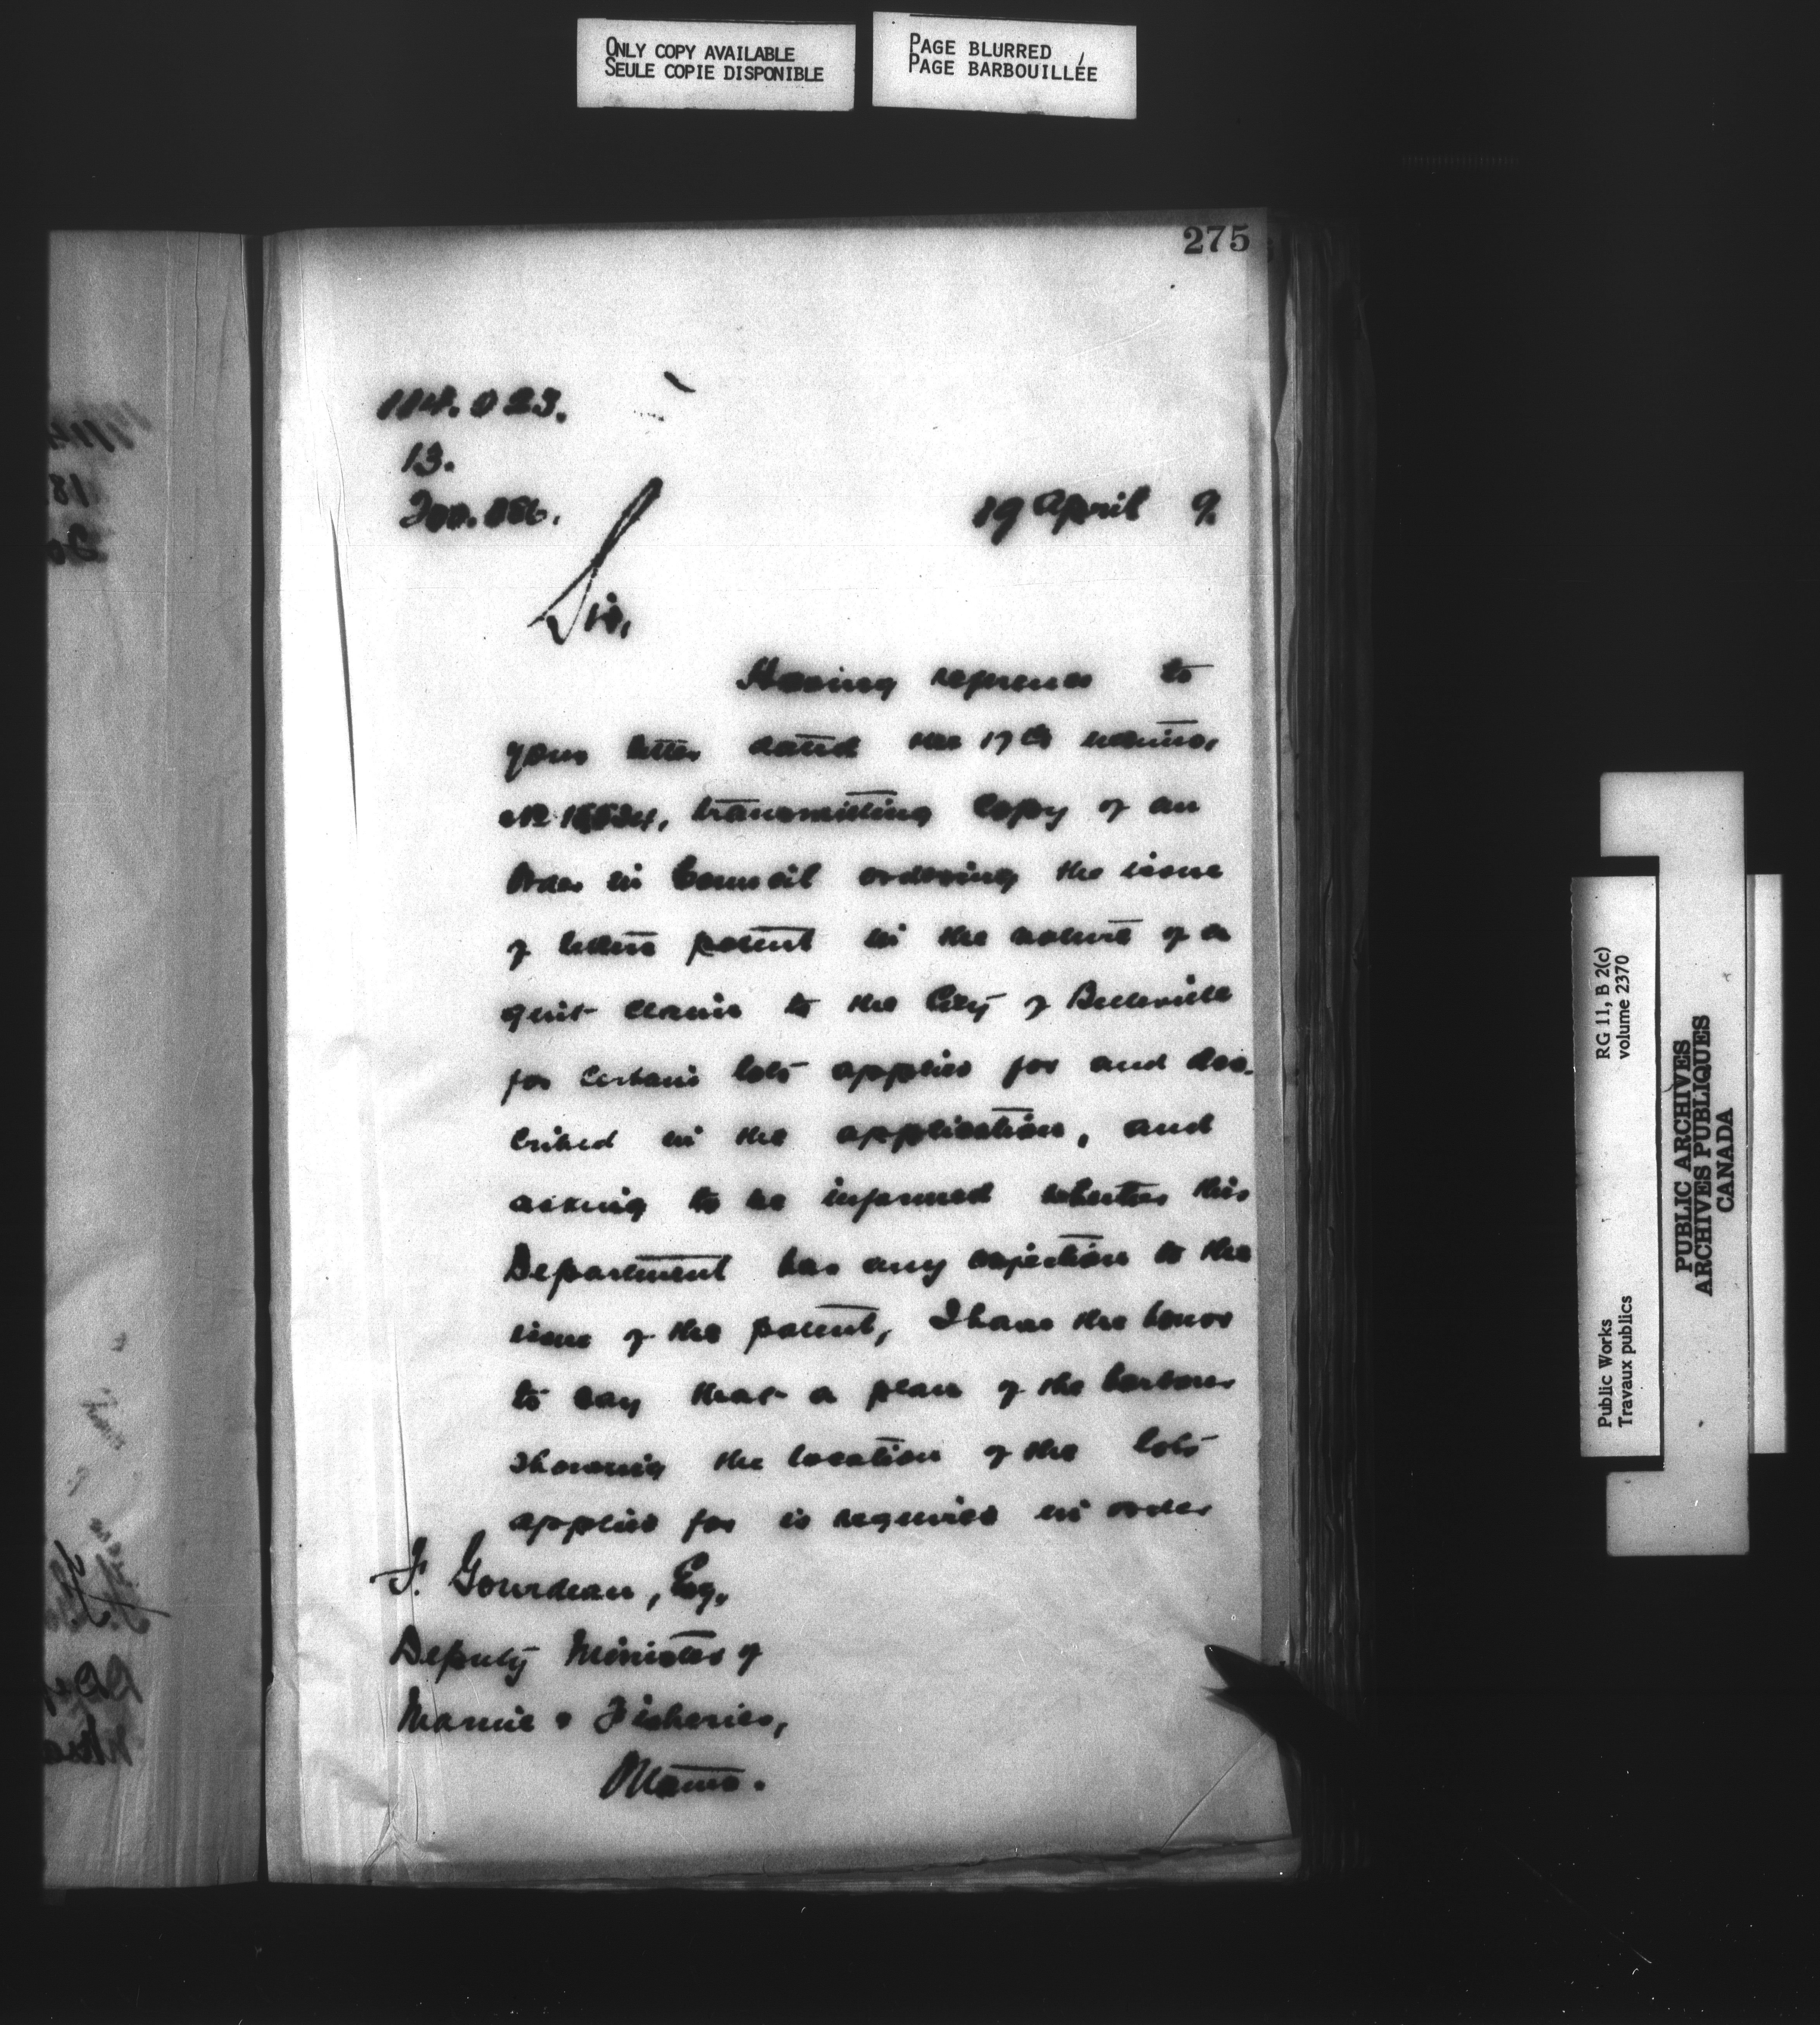 ONLY COPY AVAILABLE
SEULE COPIE DISPONIBLE
PAGE BLURRED
PAGE BARBOUILLÉE
275
114.023.
13.
19 April 9.
Sir,
Having reference to
your letter dated the 17th
transmitting Copy of an
Order in Council ordering the issue
of letters patent in the nature of a
quit claim to the City of Belleville
for certain lots applied for and des-
cribed in the application, and
asking to be informed whether this
Department has any objection to the
issue of the patent, I have the honor
to say that a plan of the harbour
showing the location of the lots
applied for is required in order
F. Gourdeau, Esq,
Deputy Minister of
Marine & Fisheries,
Ottawa.
Public Works
Travaux publics
RG 11, B 2(c)
volume 2370
PUBLIC ARCHIVES
ARCHIVES PUBLIQUES
CANADA